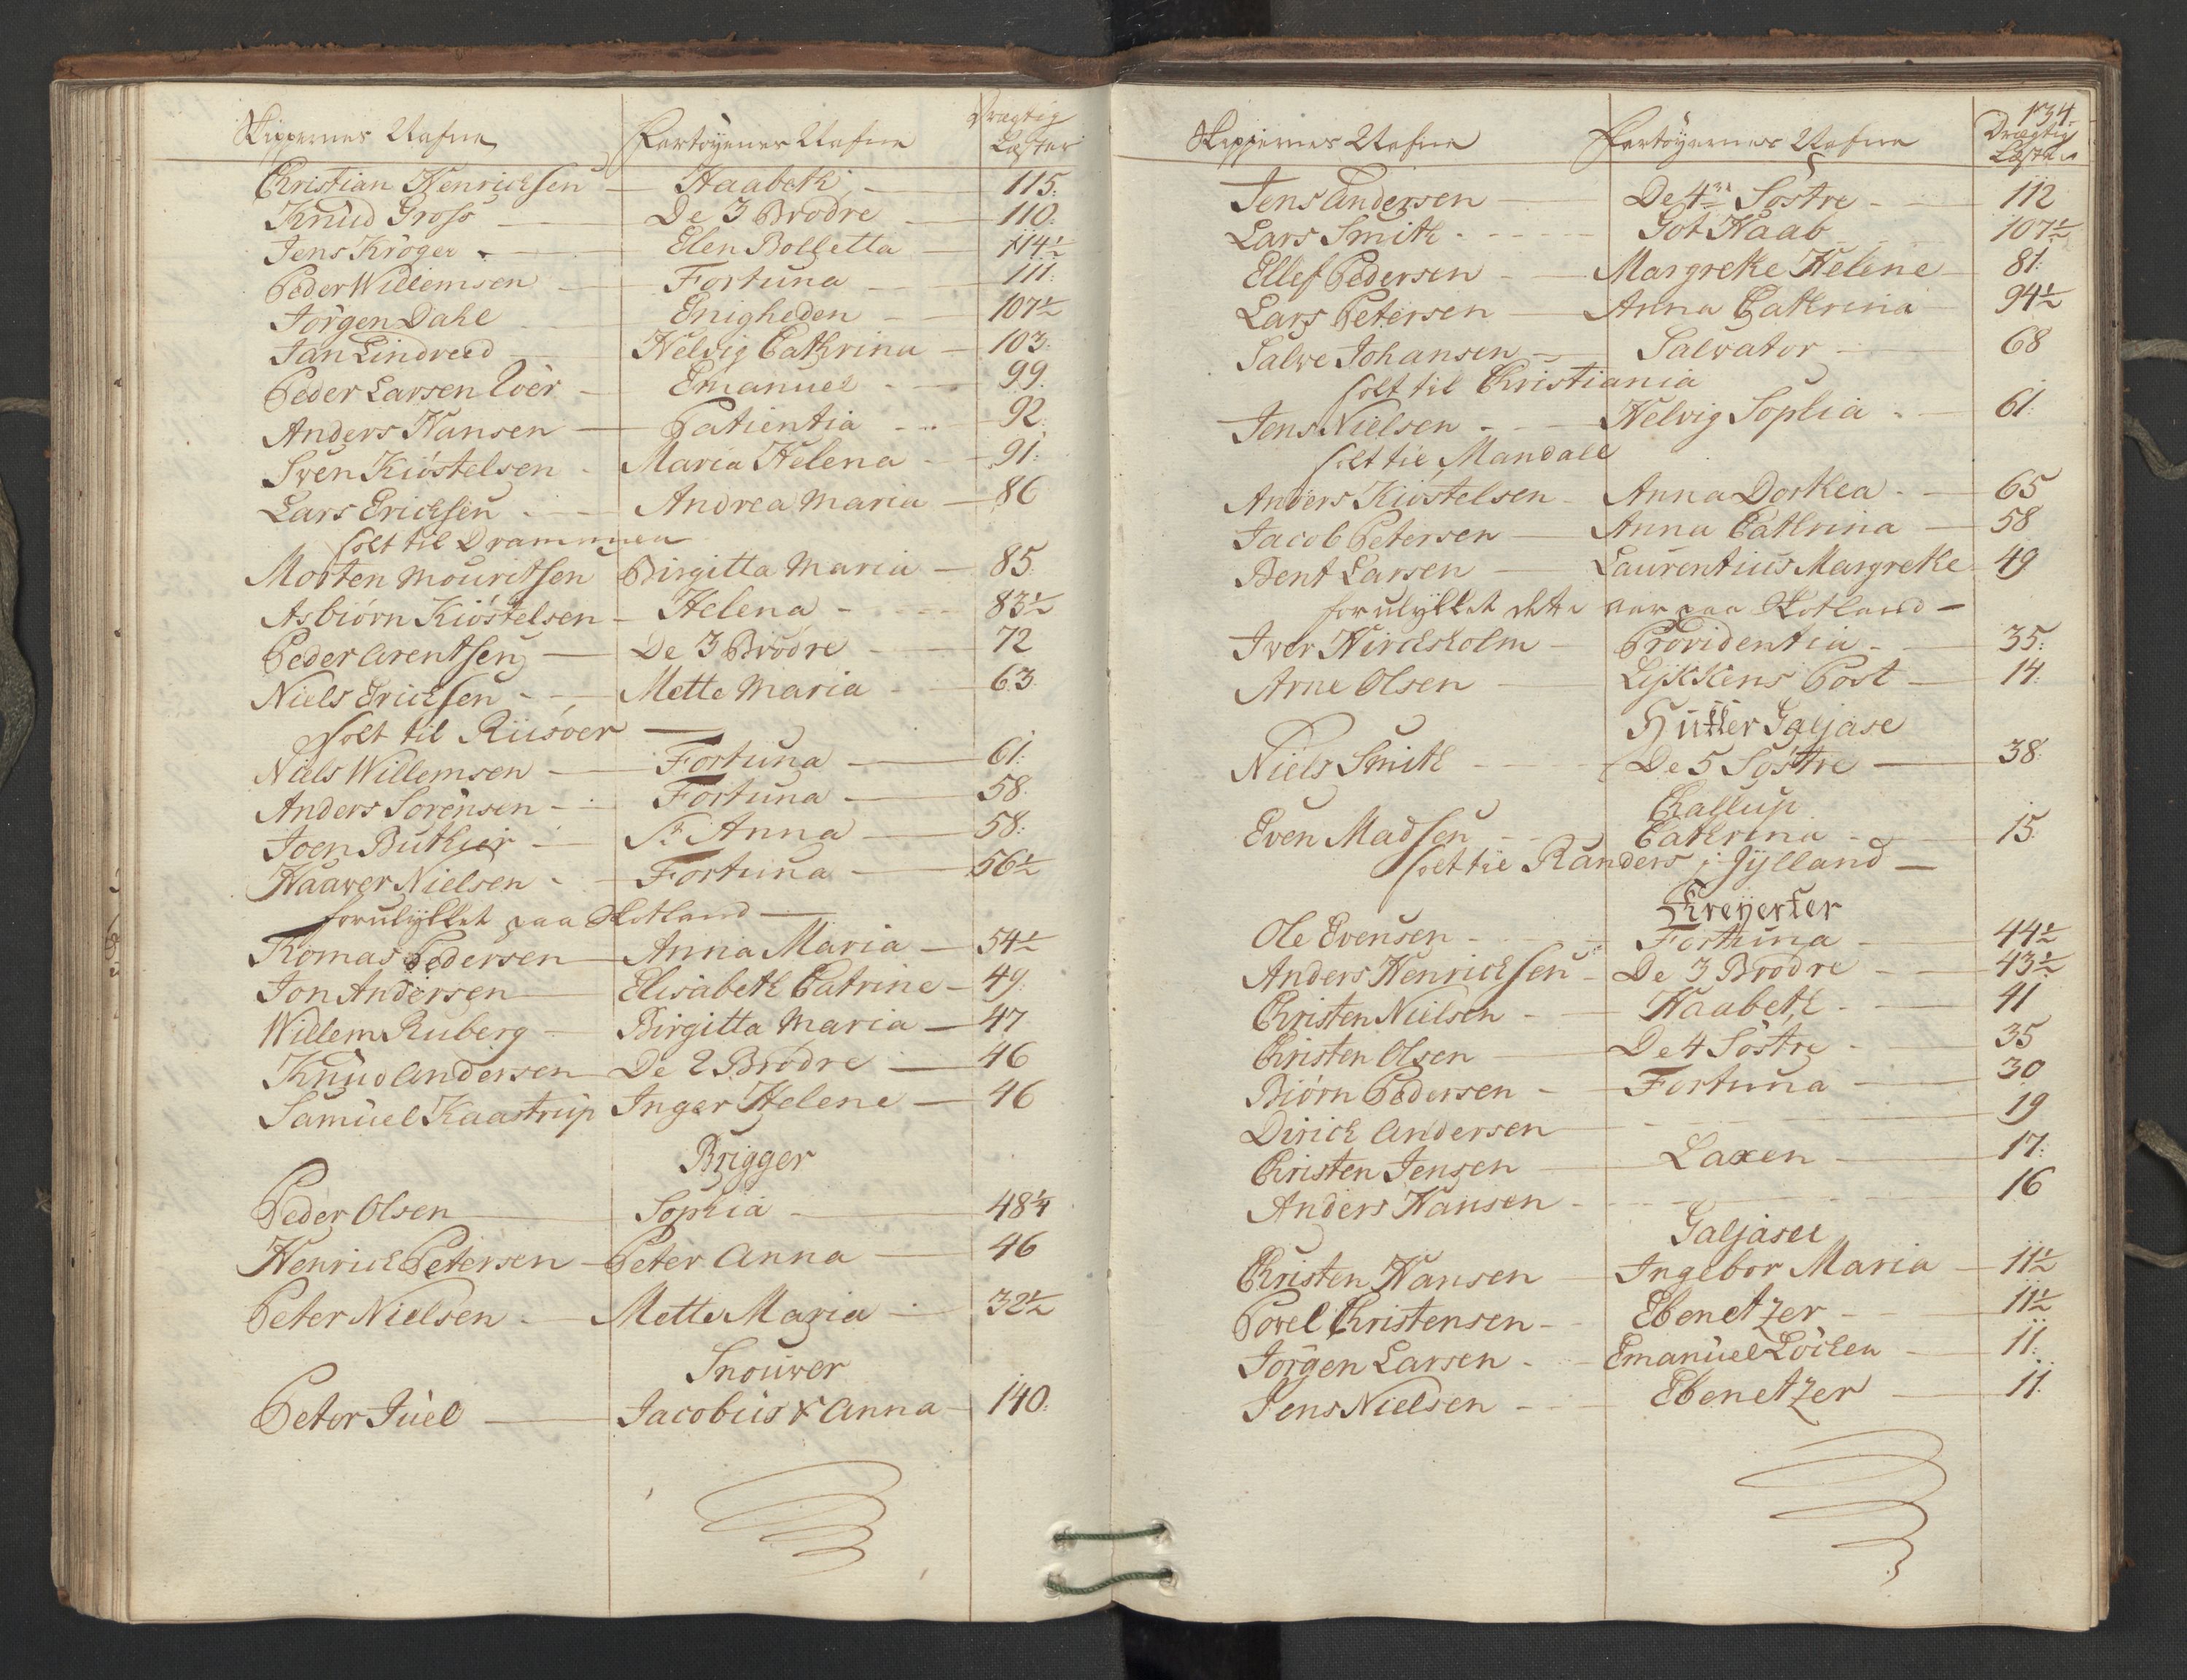 Skippernes Nafne Fartöyenes Nafne Drægtig Læster
Christian Henrichsen — Haabeth — 115.
Knud Gross — De 3 Brödre — 110.
Jens Kröger — Elen Bolletta — 114½
Peder Willemsen — Fortuna — 111.
Jörgen Dahl — Enigheden — 107½
Jan Lindreed — Helvig Cathrina — 103.
Peder Larsen — Emanuel — 99.
Anders Hansen — Patientia — 92.
Sven Kiöstelsen — Maria Helena — 91.
Lars Erichsen — Andrea Maria — 86
solt til Drammen
Morten Mouritsen Birgitta Maria — 85.
Asbiörn Kiöstelsen — Helena — 83½
Peder Arentsen — De 3 Brödre — 72
Niels Erichsen — Mette Maria — 63.
solt til Riisöer —
Niels Willemsen — Fortuna — 61.
Anders Sörensen — Fortuna — 58.
Joen Butkier — St Anna — 58.
Haaver Nielsen — Fortuna — 56½
forulykket paa Skotland —
Thomas Pedersen — Anna Maria — 54½
Jon Andersen — Elisabeth Catrine — 49.
Willem Ruberg — Birgitta Maria — 47
Knud Andersen — De 2 Brödre — 46
Samuel Kaastrup Inger Helene — 46
Brigger
Peder Olsen — Sophia — 48¼
Henrich Petersen — Peter Anna — 46
Peter Nielsen — Mette Maria — 32½
Snouver
Peter Juel — Jacobus & Anna — 140.
134.
Skippernes Nafne Fartöyernes Nafne Drægtig Læster
Jens Andersen — De 4re Söstre — 112
Lars Smith — Got Haab 107½
Ellef Pedersen — Margrethe Helene — 81.
Lars Petersen — Anna Cathrina 94½
Salve Johansen — Salvator — 68
solt til Christiania
Jens Nielsen — Helvig Sophia — 61.
solt til Mandall
Anders Kiöstelsen — Anna Dorthea — 65
Jacob Petersen — Anna Cathrina — 58
Bent Larsen — Laurentius Margrethe 49
forulykket dette aar paa Skotland —
Iver Hirchholm — Providentia — 35.
Arne Olsen — Lykkens Post — 14.
Hukker Galjase
Niels Smith — De 5 Söstre — 38.
Challup
Even Madsen — Cathrina — 15.
solt til Randers i Jylland —
Kreyerter
Ole Evensen — Fortuna — 44½
Anders Henrichsen — De 3 Brödre — 43½
Christen Nielsen — Haabeth — 41
Christen Olsen — De 4 Söstre — 35
Biörn Pedersen — Fortuna — 30
Dirich Andersen — 19
Christen Jensen — Laxen — 17.
Anders Hansen — 16
Galjaser
Christen Hansen — Ingebor Maria — 11½
Povel Christensen — Ebenetzer — 11½
Jörgen Larsen — Emanuel Löcken — 11.
Jens Nielsen — Ebenetzer — 11.